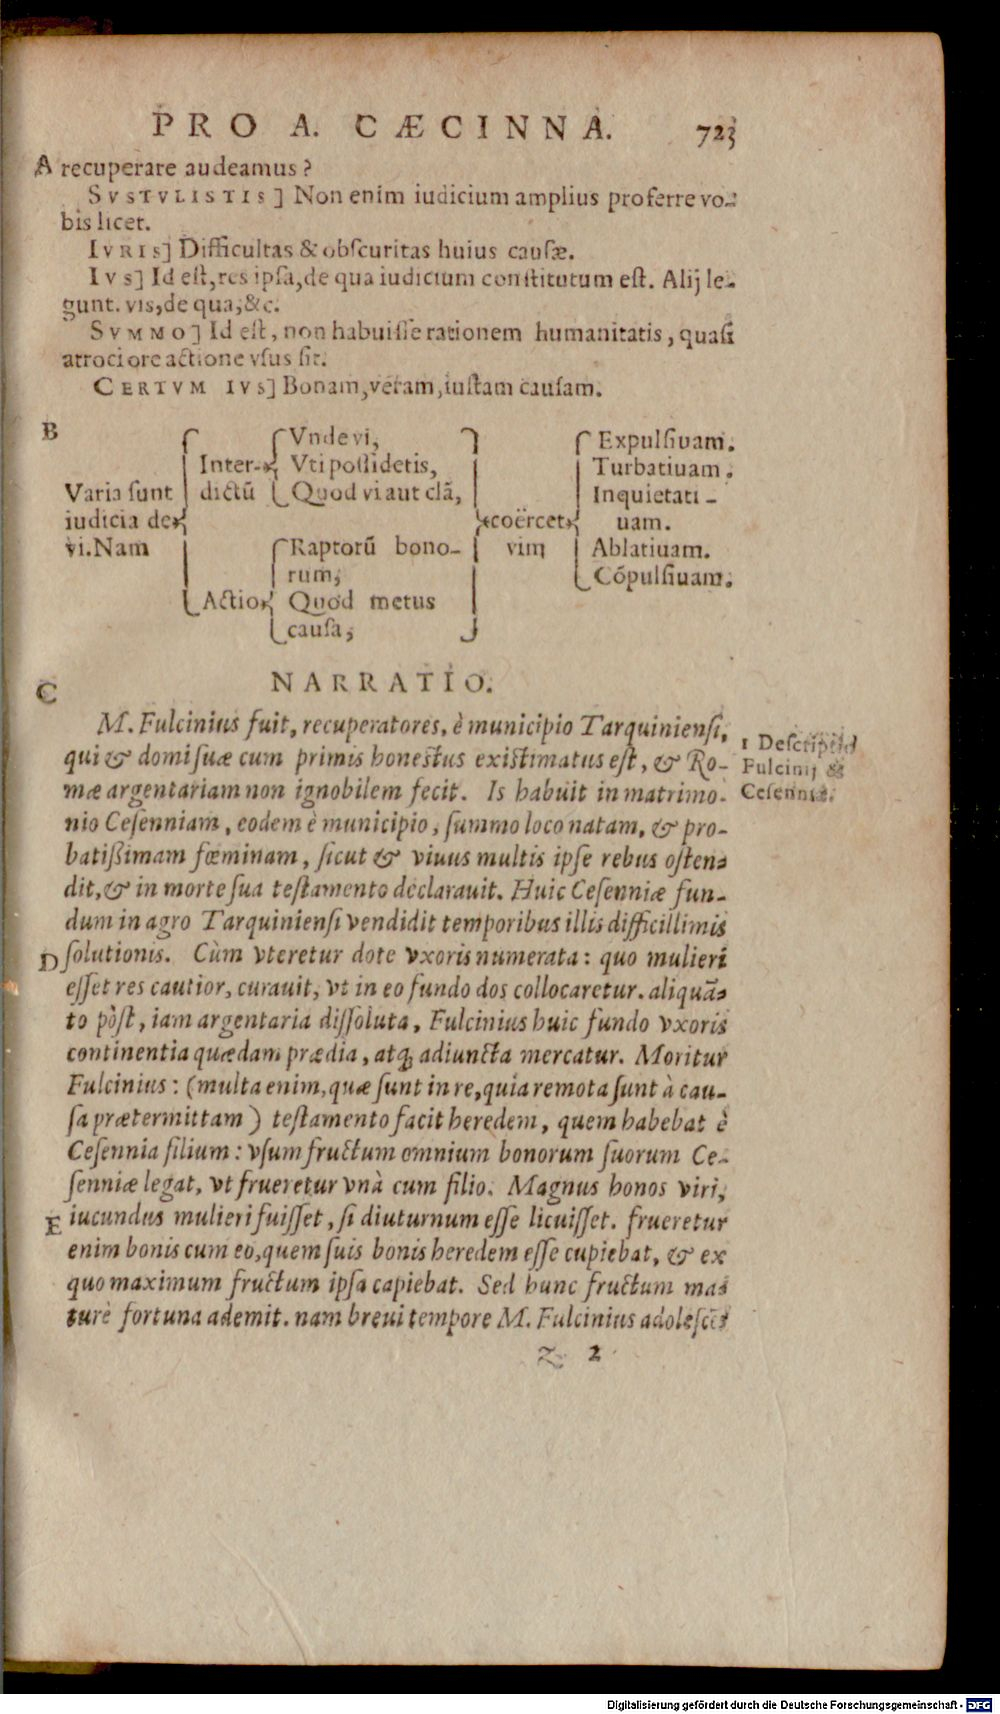 PRO A. CÆCINNA. 723
A recuperare audeamus?
SVSTVLISTIS] Non enim iudicium amplius proferre vo-
bis licet.
IVRIS] Difficultas & obscuritas huius causæ.
IVS] Id est, res ipsa, de qua iudicium constitutum est. Alij le-
gunt. vis, de qua, &c.
SVMMO] Id est, non habuisse rationem humanitatis, quasi
atrociore actione vsus sit.
CERTVM IVS] Bonam, veram, iustam causam.
B
Varia sunt
iudicia de
vi. Nam
Inter-
dictũ
Vnde vi,
Vti possidetis,
Quod vi aut clã,
Actio
Raptorũ bono-
rum,
Quod metus
causa,
coërcet
vim
Expulsiuam.
Turbatiuam.
Inquietati-
uam.
Ablatiuam.
Cõpulsiuam.
C
NARRATIO.
M. Fulcinius fuit, recuperatores, è municipio Tarquiniensi,
qui & domi suæ cum primis honestus existimatus est, & Ro-
mæ argentariam non ignobilem fecit. Is habuit in matrimo-
nio Cesenniam, eodem è municipio, summo loco natam, & pro-
batißimam fœminam, sicut & viuus multis ipse rebus osten-
dit, & in morte sua testamento declarauit. Huic Cesenniæ fun-
dum in agro Tarquiniensi vendidit temporibus illis difficillimis
D solutionis. Cùm vteretur dote vxoris numerata: quo mulieri
esset res cautior, curauit, vt in eo fundo dos collocaretur. aliquã-
to pòst, iam argentaria dissoluta, Fulcinius huic fundo vxoris
continentia quædam prædia, atq; adiuncta mercatur. Moritur
Fulcinius: (multa enim, quæ sunt in re, quia remota sunt à cau-
sa prætermittam) testamento facit heredem, quem habebat è
Cesennia filium: vsum fructum omnium bonorum suorum Ce-
senniæ legat, vt frueretur vnà cum filio. Magnus honos viri,
E iucundus mulieri fuisset, si diuturnum esse licuisset. frueretur
enim bonis cum eo, quem suis bonis heredem esse cupiebat, & ex
quo maximum fructum ipsa capiebat. Sed hunc fructum ma-
turè fortuna ademit. nam breui tempore M. Fulcinius adolescẽs
1 Descriptio
Fulcinij &
Cesenniæ.
Z 2
Digitalisierung gefördert durch die Deutsche Forschungsgemeinschaft - DFG